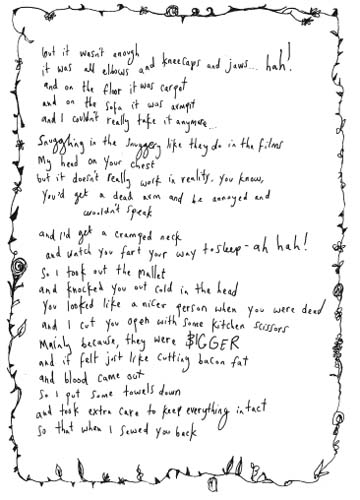 but it wasn't enough
it was all elbows and kneecaps and jaws... hah!
and on the floor it was carpet
and on the sofa it was armpit
and I couldn't really take it anymore...
Snuggling in the snuggery like they do in the films
My head on your chest
but it doesn't really work in reality. you know,
You'd get a dead arm and be annoyed and
wouldn't speak
and I'd get a cramped neck
and watch you fart your way to sleep - ah hah!
So I took out the mallet
and knocked you out cold in the head
You looked like a nicer person when you were dead
and I cut you open with some kitchen scissors
Mainly because, they were BIGGER
and it felt just like cutting bacon fat
and blood came out
So I put some towels down
and took extra care to keep everything intact
So that when I sewed you back